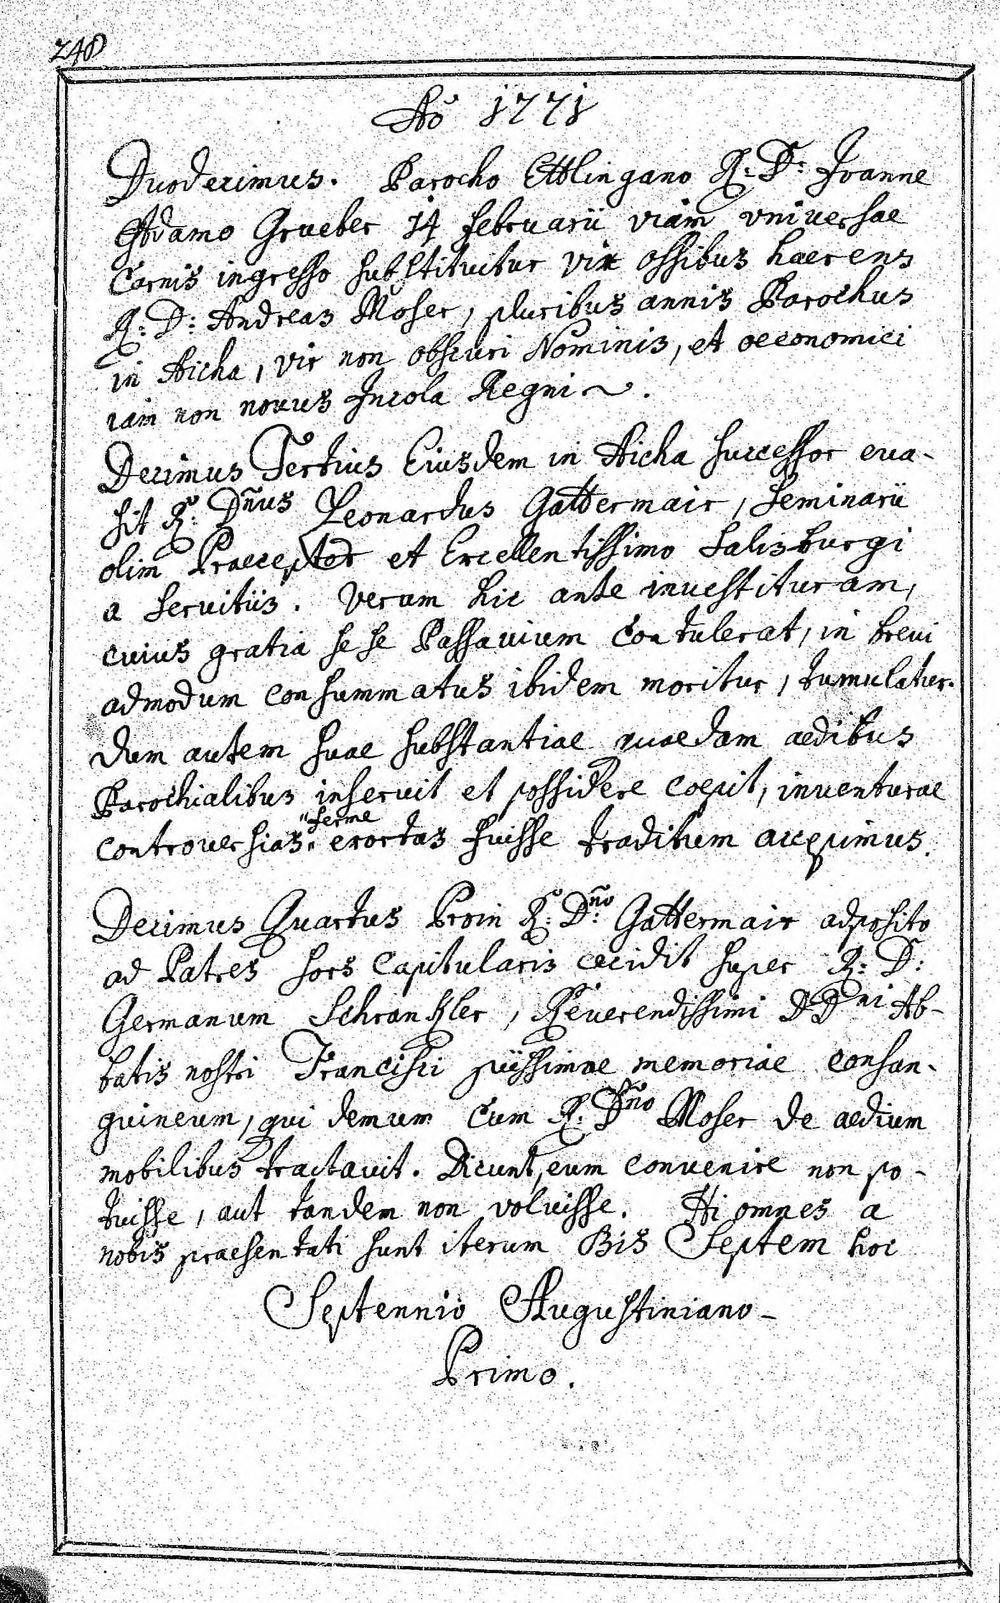 248
Aõ 1771
Duodecimus. Parocho Ettlingano R: D: Joanne
Adamo Grueber 14 Februarii viam vniversae
Carnis ingresso substituitur vix ossibus haerens
R: D: Andreas Moser, pluribus annis Parochus
in Aicha, vir non obscuri Nominis, et oeconomici
iam non novus Incola Regni.
Decimus Tertius Eiusdem in Aicha successor eua-
sit R: Dñus Leonardus Gattermair, Seminarii
olim Praeceptor et Excellentissimo Salisburgi
a seruitiis. Verum hic ante inuestituram,
cuius gratia sese Passauium Contulerat, in breui
admodum consummatus ibidem moritur, tumulatur.
dum autem suae substantiae quaedam aedibus
Parochialibus inseruit et possidere coepit, inventurae
controuersias ferme exortas fuisse traditum accepimus.
Decimus Quartus Proin R: Dño: Gattermair adposito
ad Patres sors Capitularis cecidit super R: D:
Germanum Schrankler, Reuerendissimi DDni Ab-
batis nostri Francisci piissimae memoriae consan-
guineum, qui demum Cum R: Dño Moser de aedium
mobilibus tractauit. Dicunt, eum convenire non po-
tuisse, aut tandem non voluisse. Hi omnes a
nobis praesentati sunt iterum Bis Septem hoc
Septennio Augustiniano-
Primo.